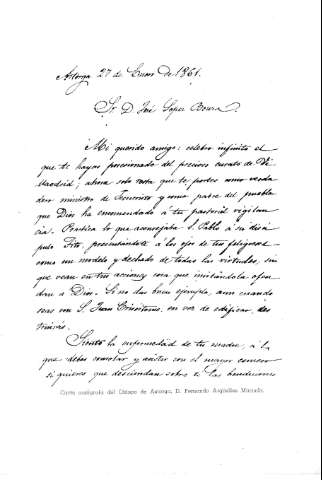 Astorga 27 de Enero de 1861.
Sr. D. José Lopez
Mi querido amigo: celebro infinito el
que te hayas posesionado del precioso curato de Vi
llamadrid; ahora solo resta que te portes como verda
dero ministro de Jesucristo y como padre del pueblo
que Dios ha encomendado á tu pastoral vigilan
cia. Practica lo que aconsejaba S. Pablo á su discí
pulo Tito, presentándote á los ojos de tus feligreses
como un modelo y dechado de todas las virtudes, sin
que vean en tus acciones cosa que imitándola ofen
dan á Dios. Si no das buen ejemplo, aun cuando
seas un S. Juan Crisóstomo, en vez de edificar, des
truirás.
Siento la enfermedad de tu madre, á la
que debes consolar y asistir con el mayor esmero
si quieres que desciendan sobre ti las bendiciones
Carta autógrafa del Obispo de Astorga, D. Fernando Argüelles Miranda.